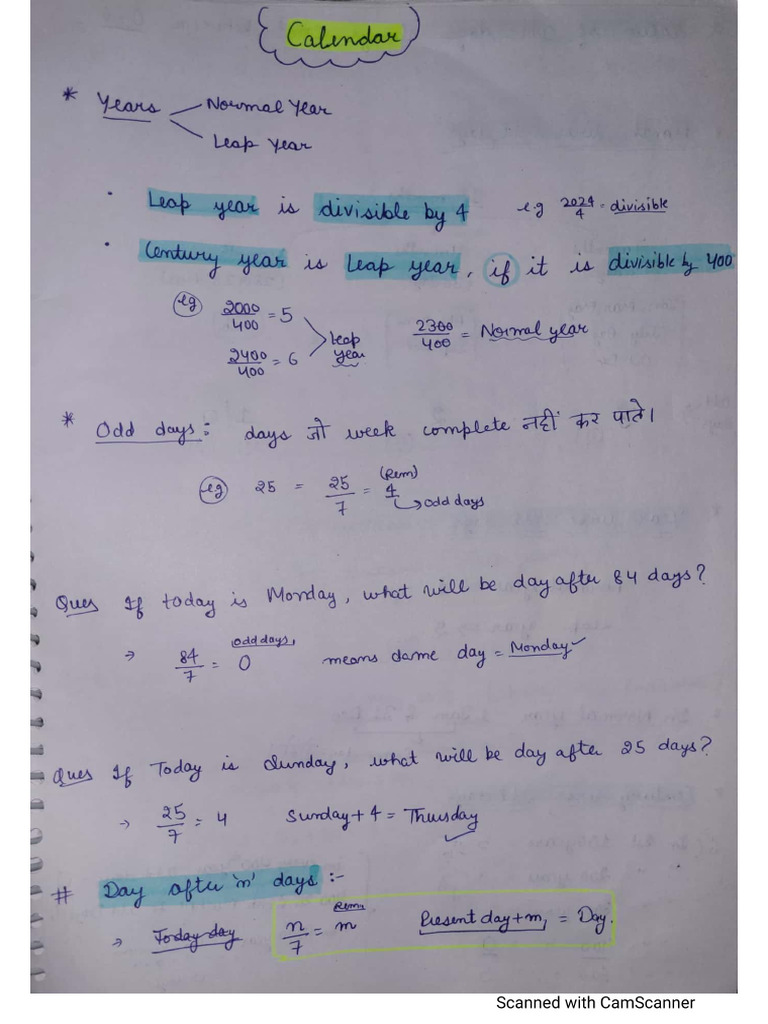 Calendar
* Years Normal Year
Leap Year
· Leap year is divisible by 4 e.g 2024/4 = divisible
· Century year is leap year, if it is divisible by 400
eg 2000/400 = 5
2400/400 = 6 Leap year 2300/400 = Normal year
* Odd days: days जो week complete नहीं कर पाते।
eg 25 = 25/7 = 4 (Rem)
odd days
Ques If today is Monday, what will be day after 84 days?
→ 84/7 = 0 odd days, means same day = Monday ✓
Ques If Today is Sunday, what will be day after 25 days?
→ 25/7 = 4 Sunday + 4 = Thursday ✓
# Day after 'n' days :-
→ Today day n/7 = m Rem Present day + m, = Day.
Scanned with CamScanner